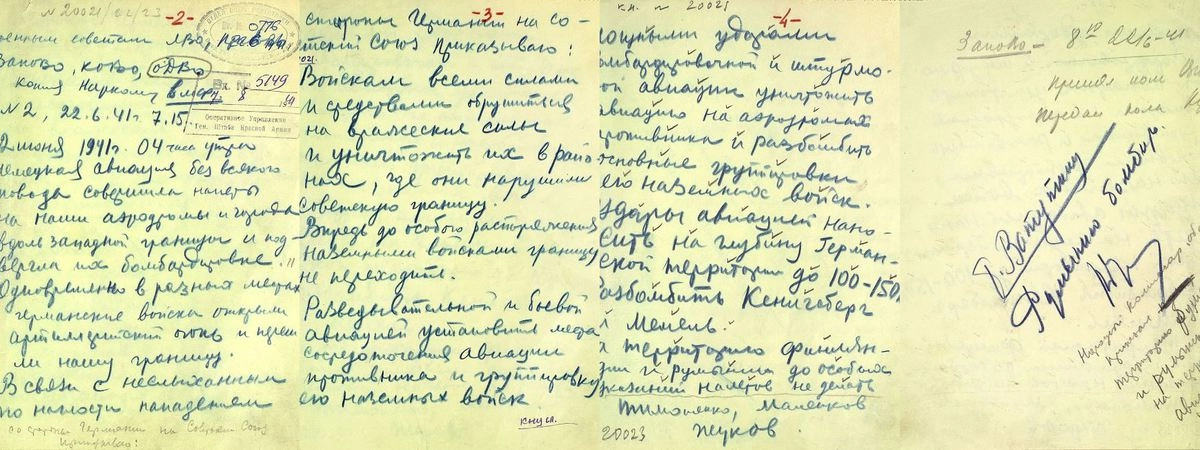 N 20021/02/23 -2-
военным советам ЛВО, ПрибОВО
ЗапОВО, КОВО, ОДВО
Копия Наркому ВМФ
Вх. № 5149
7 8 41
Оперативное Управление
Ген. Штаба Красной Армии
N2, 22.6.41г. 7.15
22 июня 1941г. 04 часа утра
немецкая авиация без всякого
повода совершила налеты
на наши аэродромы и города
вдоль западной границы и под-
вергла их бомбардировке
Одновременно в разных местах
германские войска открыли
артиллерийский огонь и переш
ли нашу границу.
В связи с неслыханным
по наглости нападением
со стороны Германии на Советский Союз
Приказываю:
-3-
стороны Германии на со-
ветский Союз Приказываю:
Войскам всеми силами
и средствами обрушиться
на вражеские силы
и уничтожить их в райо
нах, где они нарушили
советскую границу.
Впредь до особого распоряжения
наземными войсками границу
не переходить.
Разведывательной и боевой
авиацией установить места
сосредоточения авиации
противника и группировку
его наземных войск.
-4-
20023
мощными ударами
бомбардировочной и штурмо-
вой авиации уничтожить
авиацию на аэродромах
противника и разбомбить
основные группировки
его наземных войск.
Удары авиацией нано-
сить на глубину Герман-
ской территории до 100-150
Разбомбить Кенигсберг
и Мемель.
На территорию Финлян-
дии и румынии до особых
указаний налетов не делать
Тимошенко, Маленков
Жуков.
20023
Запово – 8 10 22/6-41
Принял пом
Передал пола
Т. Ватутину
Румынию бомбир.
Народный комиссар
приказал
территорию
и румынию
на